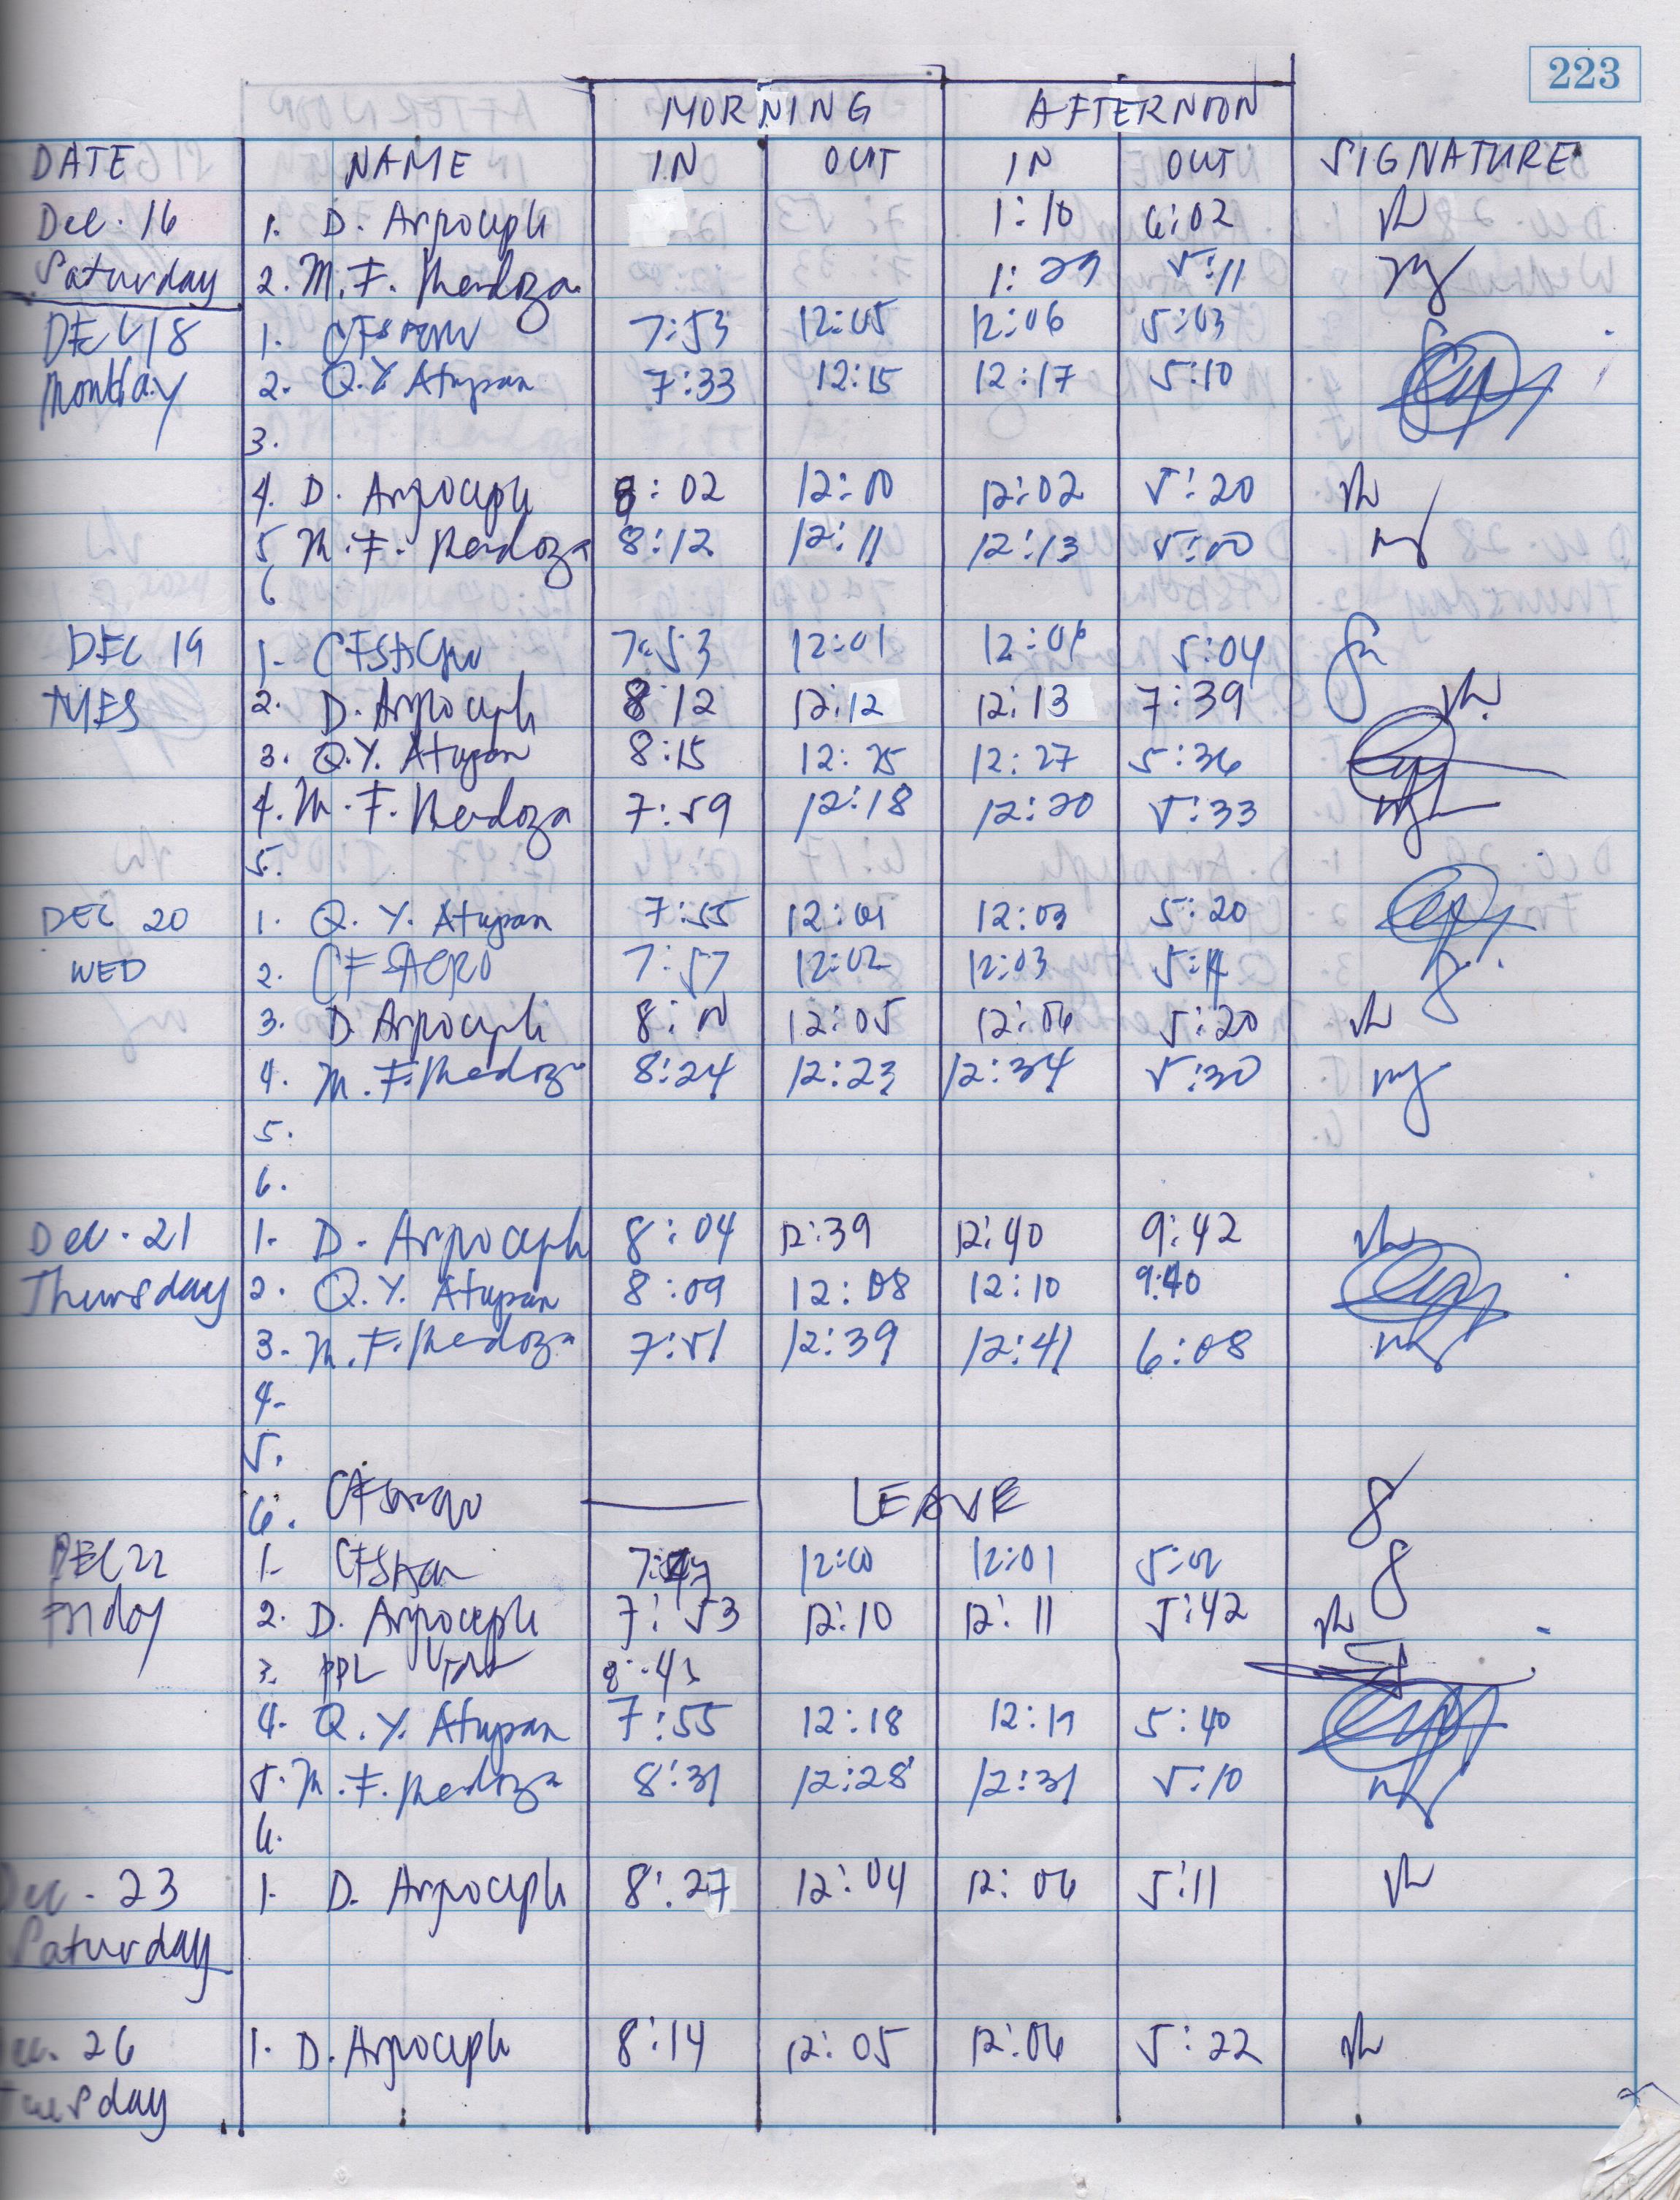 223
MORNING AFTERNOON
DATE NAME IN OUT IN OUT SIGNATURE
Dec. 16 1. D. Arpoceph 1:10 6:02
Saturday 2. M. F. Mendoza 1:29 5:11
DEC 18 1. 7:53 12:05 12:06 5:03
Monday 2. Q.Y Atupan 7:33 12:15 12:17 5:10
3.
4. D. Arpoceph 8:02 12:00 12:02 5:20
5 M. F. Mendoza 8:12 12:11 12:13 5:00
6
DEC 19 1. 7:53 12:01 5:04
TUES 2. D. Arpoceph 8:12 12:12 12:13 7:39
3. Q.Y. Atupan 8:15 12:25 12:27 5:36
4. M. F. Mendoza 7:59 12:18 12:20 5:33
5.
DEC 20 1. Q. Y. Atupan 7:55 12:01 12:03 5:20
WED 2. CFSACRO 7:57 12:02 12:03 5:14
3. D. Arpoceph 8:00 12:05 12:06 5:20
4. M. F. Mendoza 8:24 12:23 12:34 5:30
5.
6.
Dec. 21 1. D. Arpoceph 8:04 12:39 12:40 9:42
Thursday 2. Q.Y. Atupan 8:09 12:08 12:10 9:40
3. M. F. Mendoza 7:51 12:39 12:41 6:08
4.
5.
6. LEAVE
DEC 22 1. 12:00 12:01 5:02
Friday 2. D. Arpoceph 7:53 12:10 12:11 5:42
3.
4. Q. Y. Atupan 7:55 12:18 12:19 5:40
5. M. F. Mendoza 8:31 12:28 12:31 5:10
6.
Dec. 23 1. D. Arpoceph 8:27 12:04 12:06 5:11
Saturday
Dec. 26 1. D. Arpoceph 8:14 12:05 12:06 5:22
Tuesday